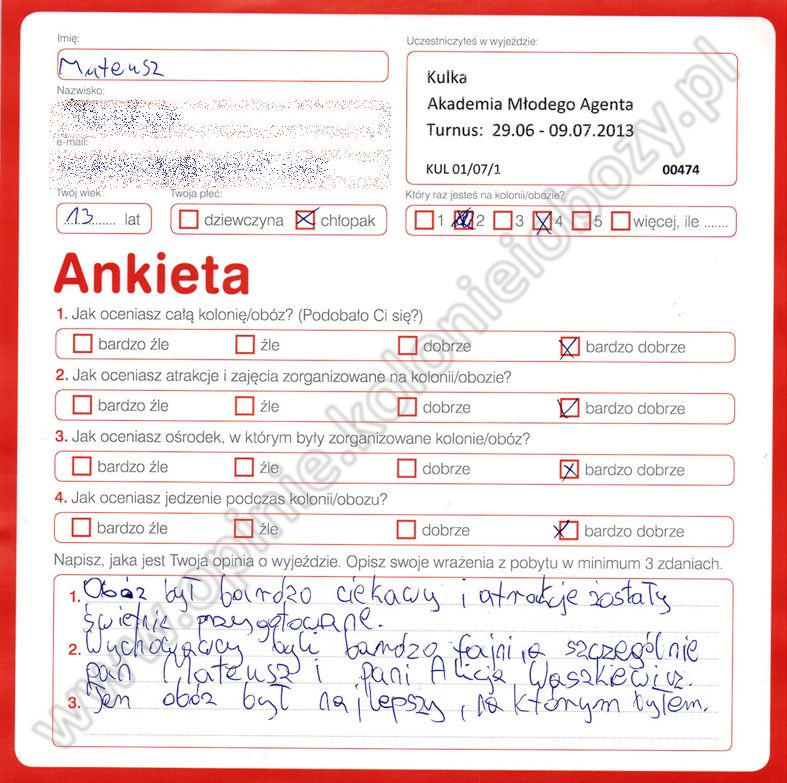 Imię:
Mateusz
Uczestniczyłeś w wyjeździe:
Kulka
Akademia Młodego Agenta
Turnus: 29.06 - 09.07.2013
KUL 01/07/1 00474
Nazwisko:
e-mail:
Twój wiek:
13 lat
Twoja płeć:
dziewczyna chłopak
Który raz jesteś na kolonii/obozie?
1 2 3 4 5 więcej, ile .......
Ankieta
1. Jak oceniasz całą kolonię/obóz? (Podobało Ci się?)
bardzo źle źle dobrze bardzo dobrze
2. Jak oceniasz atrakcje i zajęcia zorganizowane na kolonii/obozie?
bardzo źle źle dobrze bardzo dobrze
3. Jak oceniasz ośrodek, w którym były zorganizowane kolonie/obóz?
bardzo źle źle dobrze bardzo dobrze
4. Jak oceniasz jedzenie podczas kolonii/obozu?
bardzo źle źle dobrze bardzo dobrze
Napisz, jaka jest Twoja opinia o wyjeździe. Opisz swoje wrażenia z pobytu w minimum 3 zdaniach.
1. Obóz był bardzo ciekawy i atrakcje zostały
świetnie przygotowane.
2. Wychowawcy byli bardzo fajni, a szczególnie
pan Mateusz i pani Alicja Waszkiewicz.
3. Ten obóz był najlepszy, na którym byłem.
www.opinie.kolonieiobozy.pl